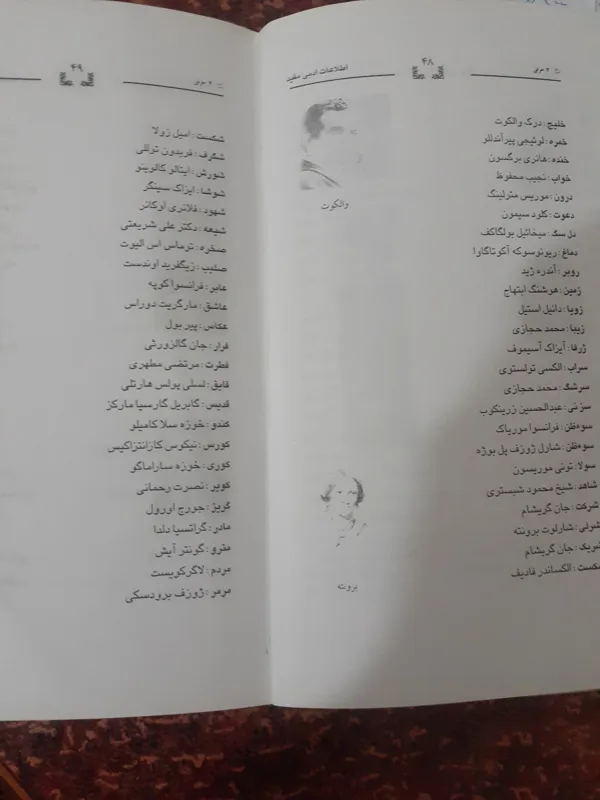 ۴۸
اطلاعات ادبی مفید
۴ حرفی
خلیج : درک والکوت
خمره : لوئیجی پیرآندللو
خنده : هانری برگسون
خواب : نجیب محفوظ
درون : موریس مترلینگ
دعوت : کلود سیمون
دل سگ : میخائیل بولگاکف
دماغ : ریونوسوکه آکوتاگاوا
روبر : آندره ژید
زمین : هوشنگ ابتهاج
زویا : دانیل استیل
زیبا : محمد حجازی
ژرفا : آیزاک آسیموف
سراب : الکسی تولستوی
سرشگ : محمد حجازی
سرنی : عبدالحسین زرینکوب
سوءظن : فرانسوا موریاک
سوءظن : شارل ژوزف پل بوژه
سولا : تونی موریسون
شاهد : شیخ محمود شبستری
شرکت : جان گریشام
شرلی : شارلوت برونته
شریک : جان گریشام
شکست : الکساندر فادیف
والکوت
برونته
۴۹
۴ حرفی
شکست : امیل زولا
شگرف : فریدون توللی
شورش : ایتالو کالوینو
شوشا : ایزاک سینگر
شهود : فلانری اوکانر
شیعه : دکتر علی شریعتی
صخره : توماس اس الیوت
صلیب : زیگفرید اوندست
عابر : فرانسوا کوپه
عاشق : مارگریت دوراس
عکاس : پیر بول
فرار : جان گالزورثی
فطرت : مرتضی مطهری
قایق : لسلی پولس هارتلی
قدیس : گابریل گارسیا مارکز
کندو : خوزه سلا کامیلو
کورس : نیکوس کازانتزاکیس
کوری : خوزه ساراماگو
کویر : نصرت رحمانی
گریز : جورج اورول
مادر : گراتسیا دلدا
مترو : گونتر آیش
مردم : لاگرکویست
مرمر : ژوزف برودسکی